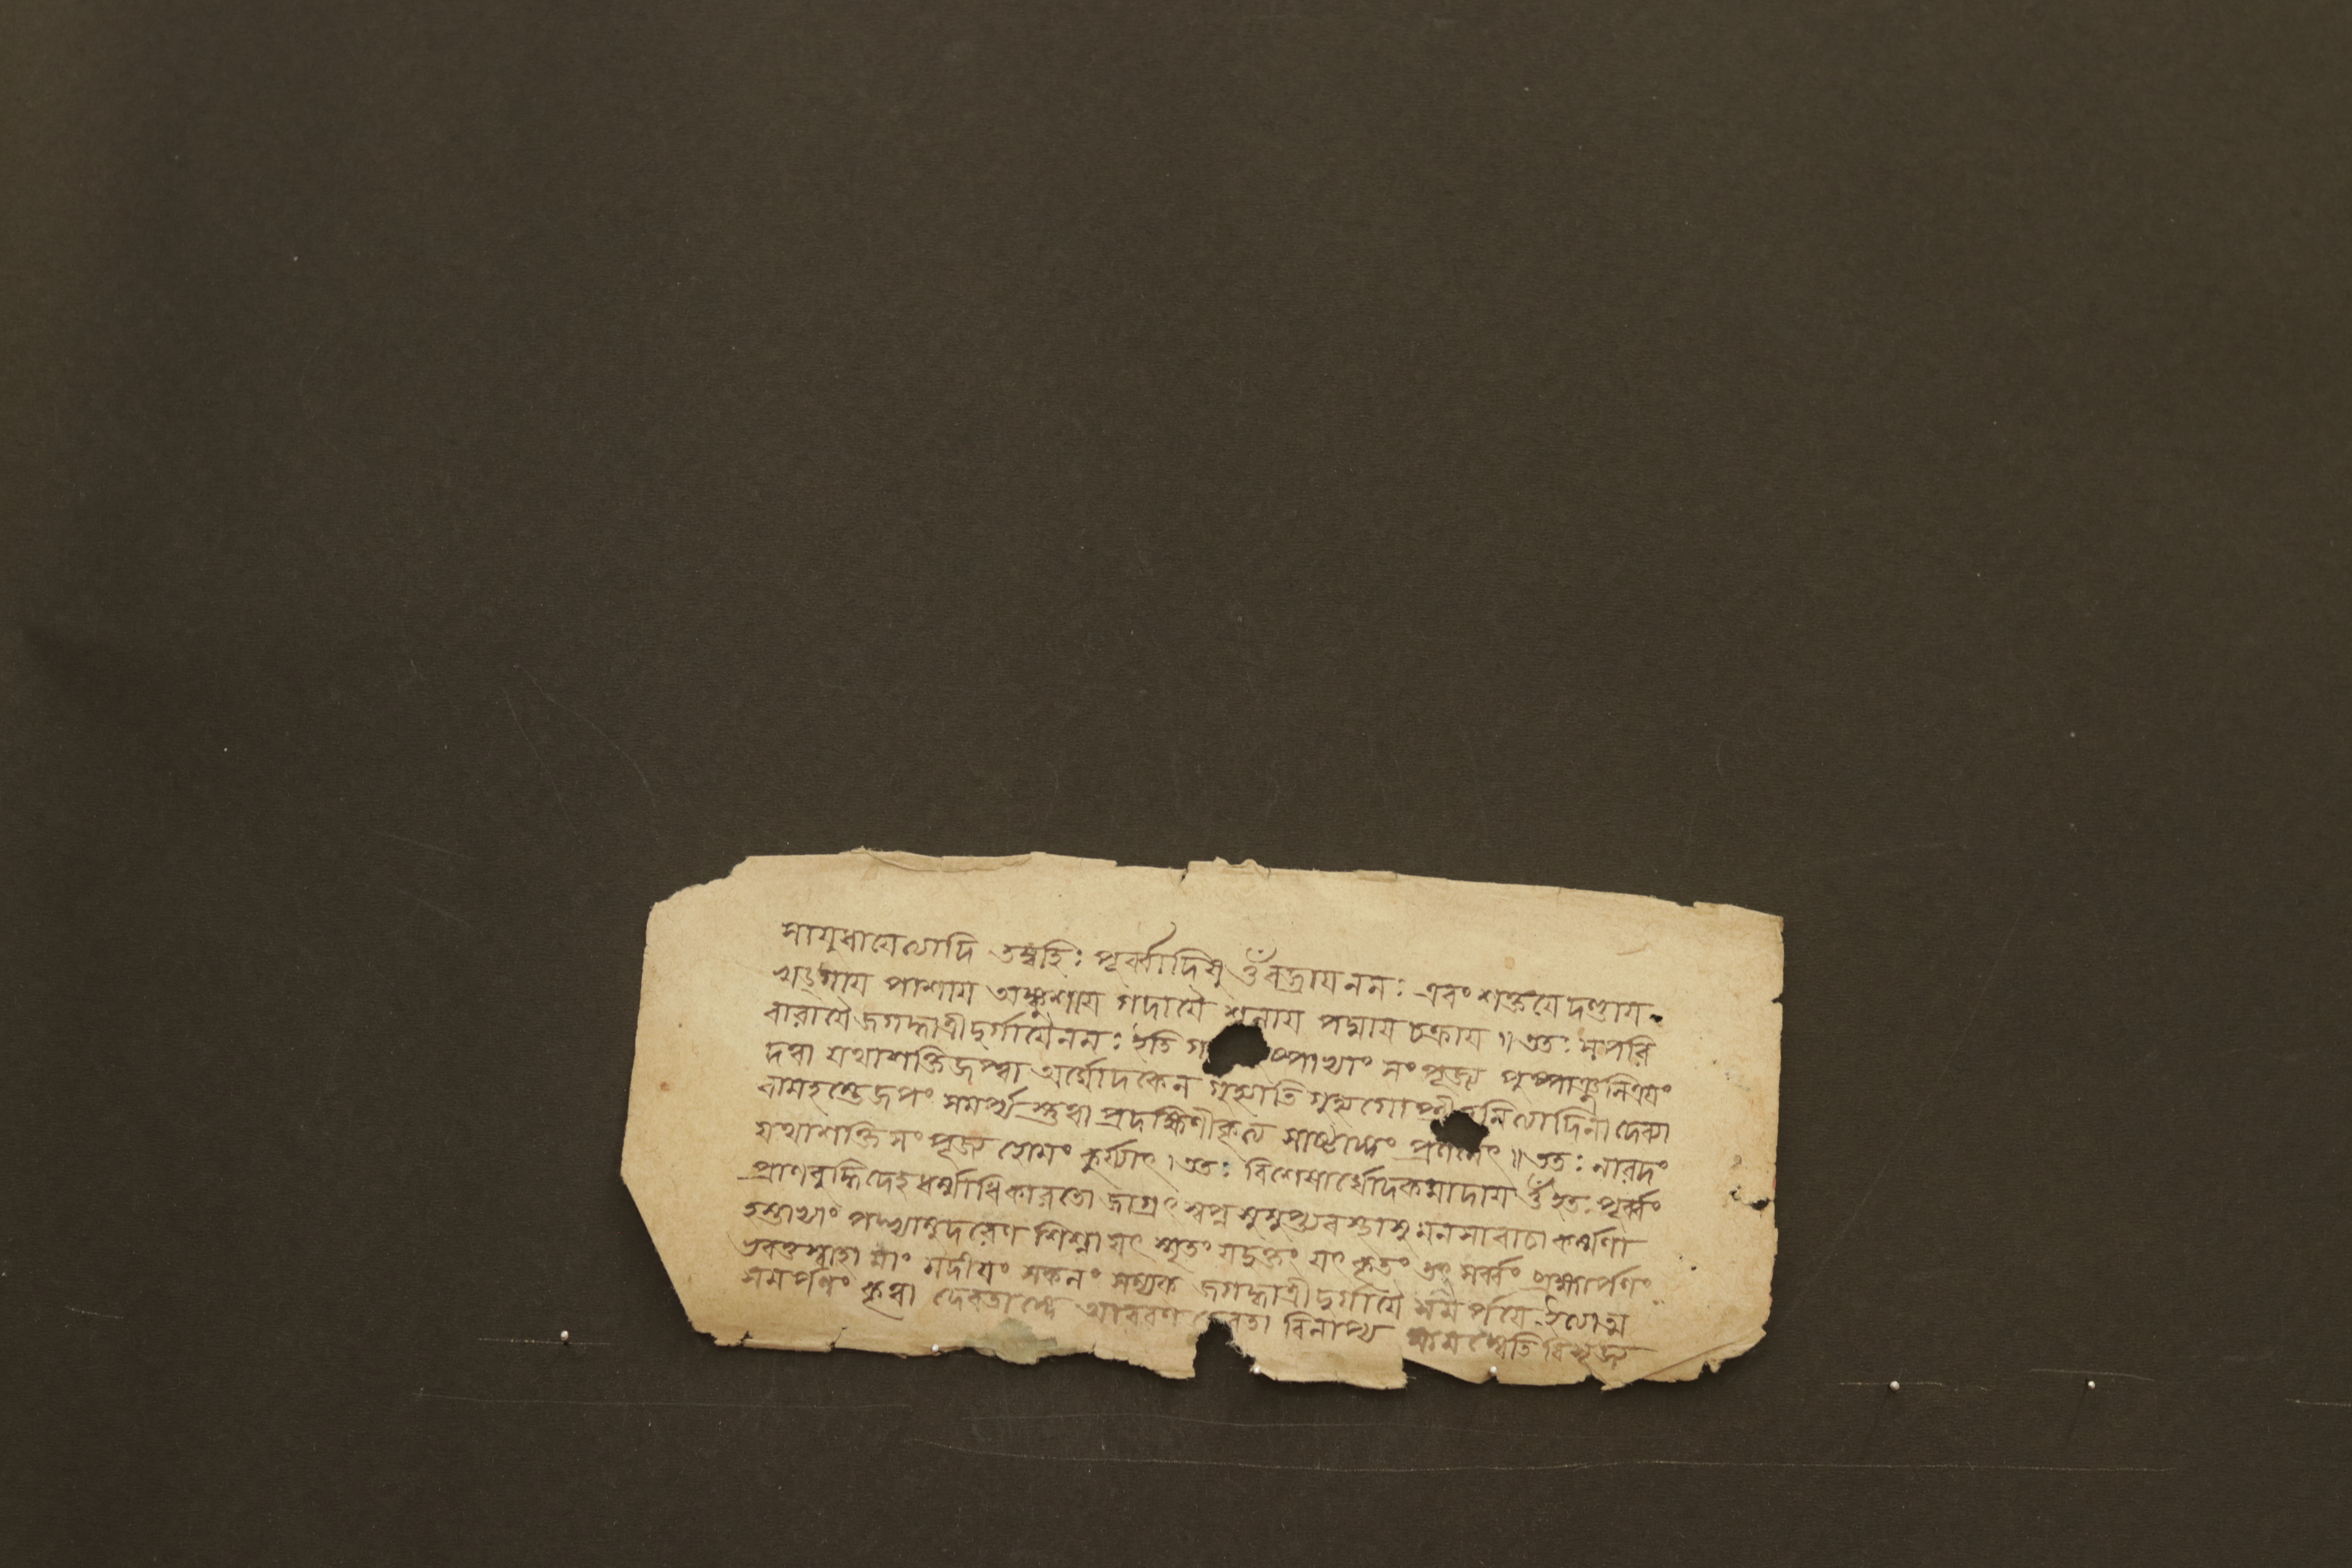 সাযুধাযেত্যাদি তদ্বহিঃ পূর্ব্বাদিষু ওঁ বজ্রায নমঃ এবং শক্তযে দণ্ডায
খড্গায পাশায অঙ্কুশায গদাযৈ শূলায পদ্মায চক্রায ॥ ততঃ সপরি
বারাযৈ জগদ্ধাত্রীদুর্গাযৈ নমঃ ইতি গ ষ্পাভ্যাং সংপূজ্য পুষ্পাঞ্জলিত্রযং
দত্বা যথাশক্তি জপ্ত্বা অর্ঘ্যোদকেন গুহ্যাতি গুহ্যগোপ্ত্রী ত্বমিত্যাদিনা দেব্যা
বামহস্তে জপং সমর্প্য স্তুত্বা প্রদক্ষিণীকৃত্য সাষ্টাঙ্গং প্রণমেৎ ॥ ততঃ নারদং
যথাশক্তি সংপূজ্য হোমং কুর্য্যাৎ। ততঃ বিশেষার্ঘ্যোদকমাদায ওঁ ইতঃ পূর্ব্বং
প্রাণবুদ্ধিদেহধর্ম্মাধিকারতো জাগ্রৎ স্বপ্ন সুষুপ্ত্যবস্থাসু মনসা বাচা কর্ম্মণা
হস্তাভ্যাং পদ্ভ্যামুদরেণ শিশ্না যৎ স্মৃতং যদুক্তং যৎ কৃতং তৎ সর্ব্বং ব্রহ্মার্পণং
ভবতু স্বাহা মাং মদীযং সকলং সম্যক জগদ্ধাত্রীদুর্গাযৈ সমর্পযে ইত্যাত্ম
সমর্পণং কৃত্বা দেবতাঙ্গে আবরণ দেবতা বিলাপ্য ক্ষমস্বেতি বিসৃজ্য